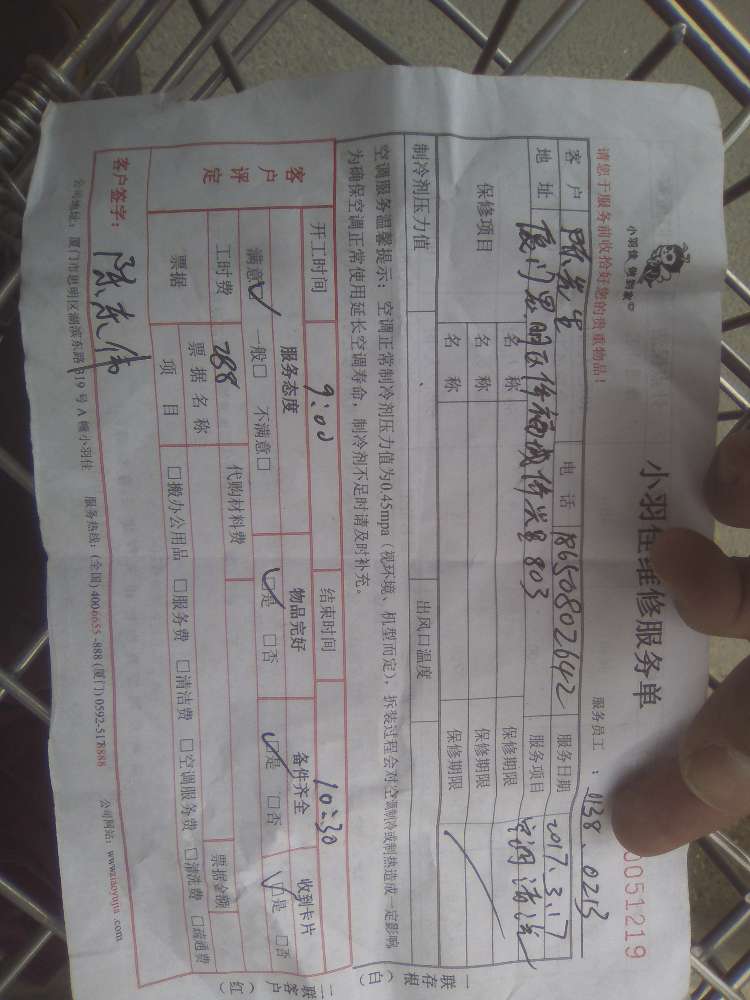 小羽佳 做到家
小羽佳维修服务单
0051219
请您于服务前收拾好您的贵重物品!
服务员工 : 1138、0213
客户 陈先生 电话 18650802642 服务日期 2017.3.17
地址 厦门思明区 803 服务项目 空调清洗
保修项目 名称 保修期限
名称 保修期限
名称 保修期限
制冷剂压力值 出风口温度
空调服务温馨提示:空调正常制冷剂压力值为0.45mpa(视环境、机型而定),拆装过程会对空调制冷或制热造成一定影响
为确保空调正常使用延长空调寿命,制冷剂不足时请及时补充。
一联存根(白)
二联客户(红)
客户评定
开工时间 9:00 结束时间 10:30
服务态度 物品完好 备件齐全 收到卡片
满意☑ 一般□ 不满意□ ☑是 □否 ☑是 □否 ☑是 □否
工时费 288 代购材料费 票据金额
票据 票据名称
项目 □搬办公用品 □服务费 □清洁费 □空调服务费 □清洗费 □疏通费
客户签字: 陈东伟
公司地址:厦门市思明区湖滨东路319号A幢小羽佳 服务热线:(全国)4006655-888(厦门)0592-5178888 公司网站:www.xiaoyujia.com